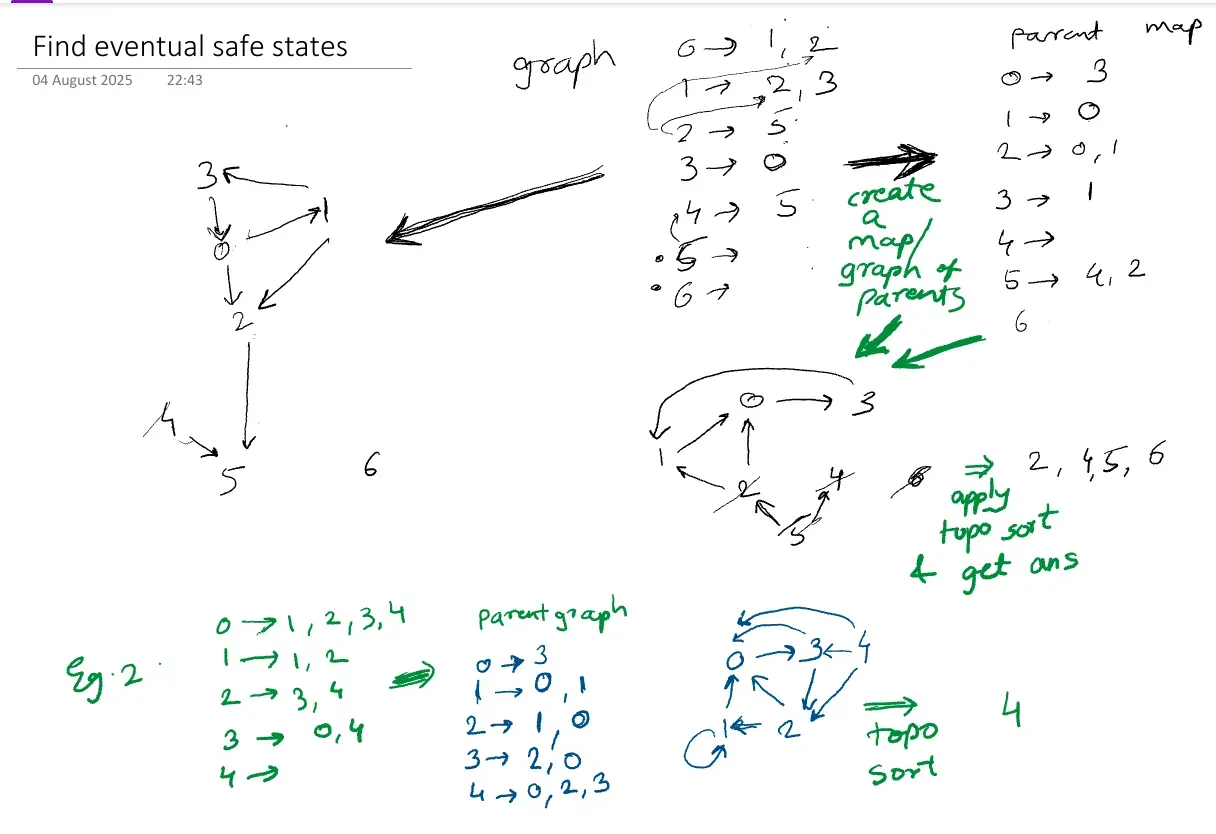 Find eventual safe states
04 August 2025 22:43
graph
0 → 1, 2
1 → 2, 3
2 → 5
3 → 0
4 → 5
5 →
6 →
create
a
map/
graph of
parents
parent map
0 → 3
1 → 0
2 → 0, 1
3 → 1
4 →
5 → 4, 2
6
3
1
0
2
4
5
6
0 → 3
1
2
4
6
5
⇒ 2, 4, 5, 6
apply
topo sort
& get ans
Eg. 2
0 → 1, 2, 3, 4
1 → 1, 2
2 → 3, 4
3 → 0, 4
4 →
parent graph
0 → 3
1 → 0, 1
2 → 1, 0
3 → 2, 0
4 → 0, 2, 3
0 → 3 ← 4
1 ← 2
⇒ 4
topo
sort